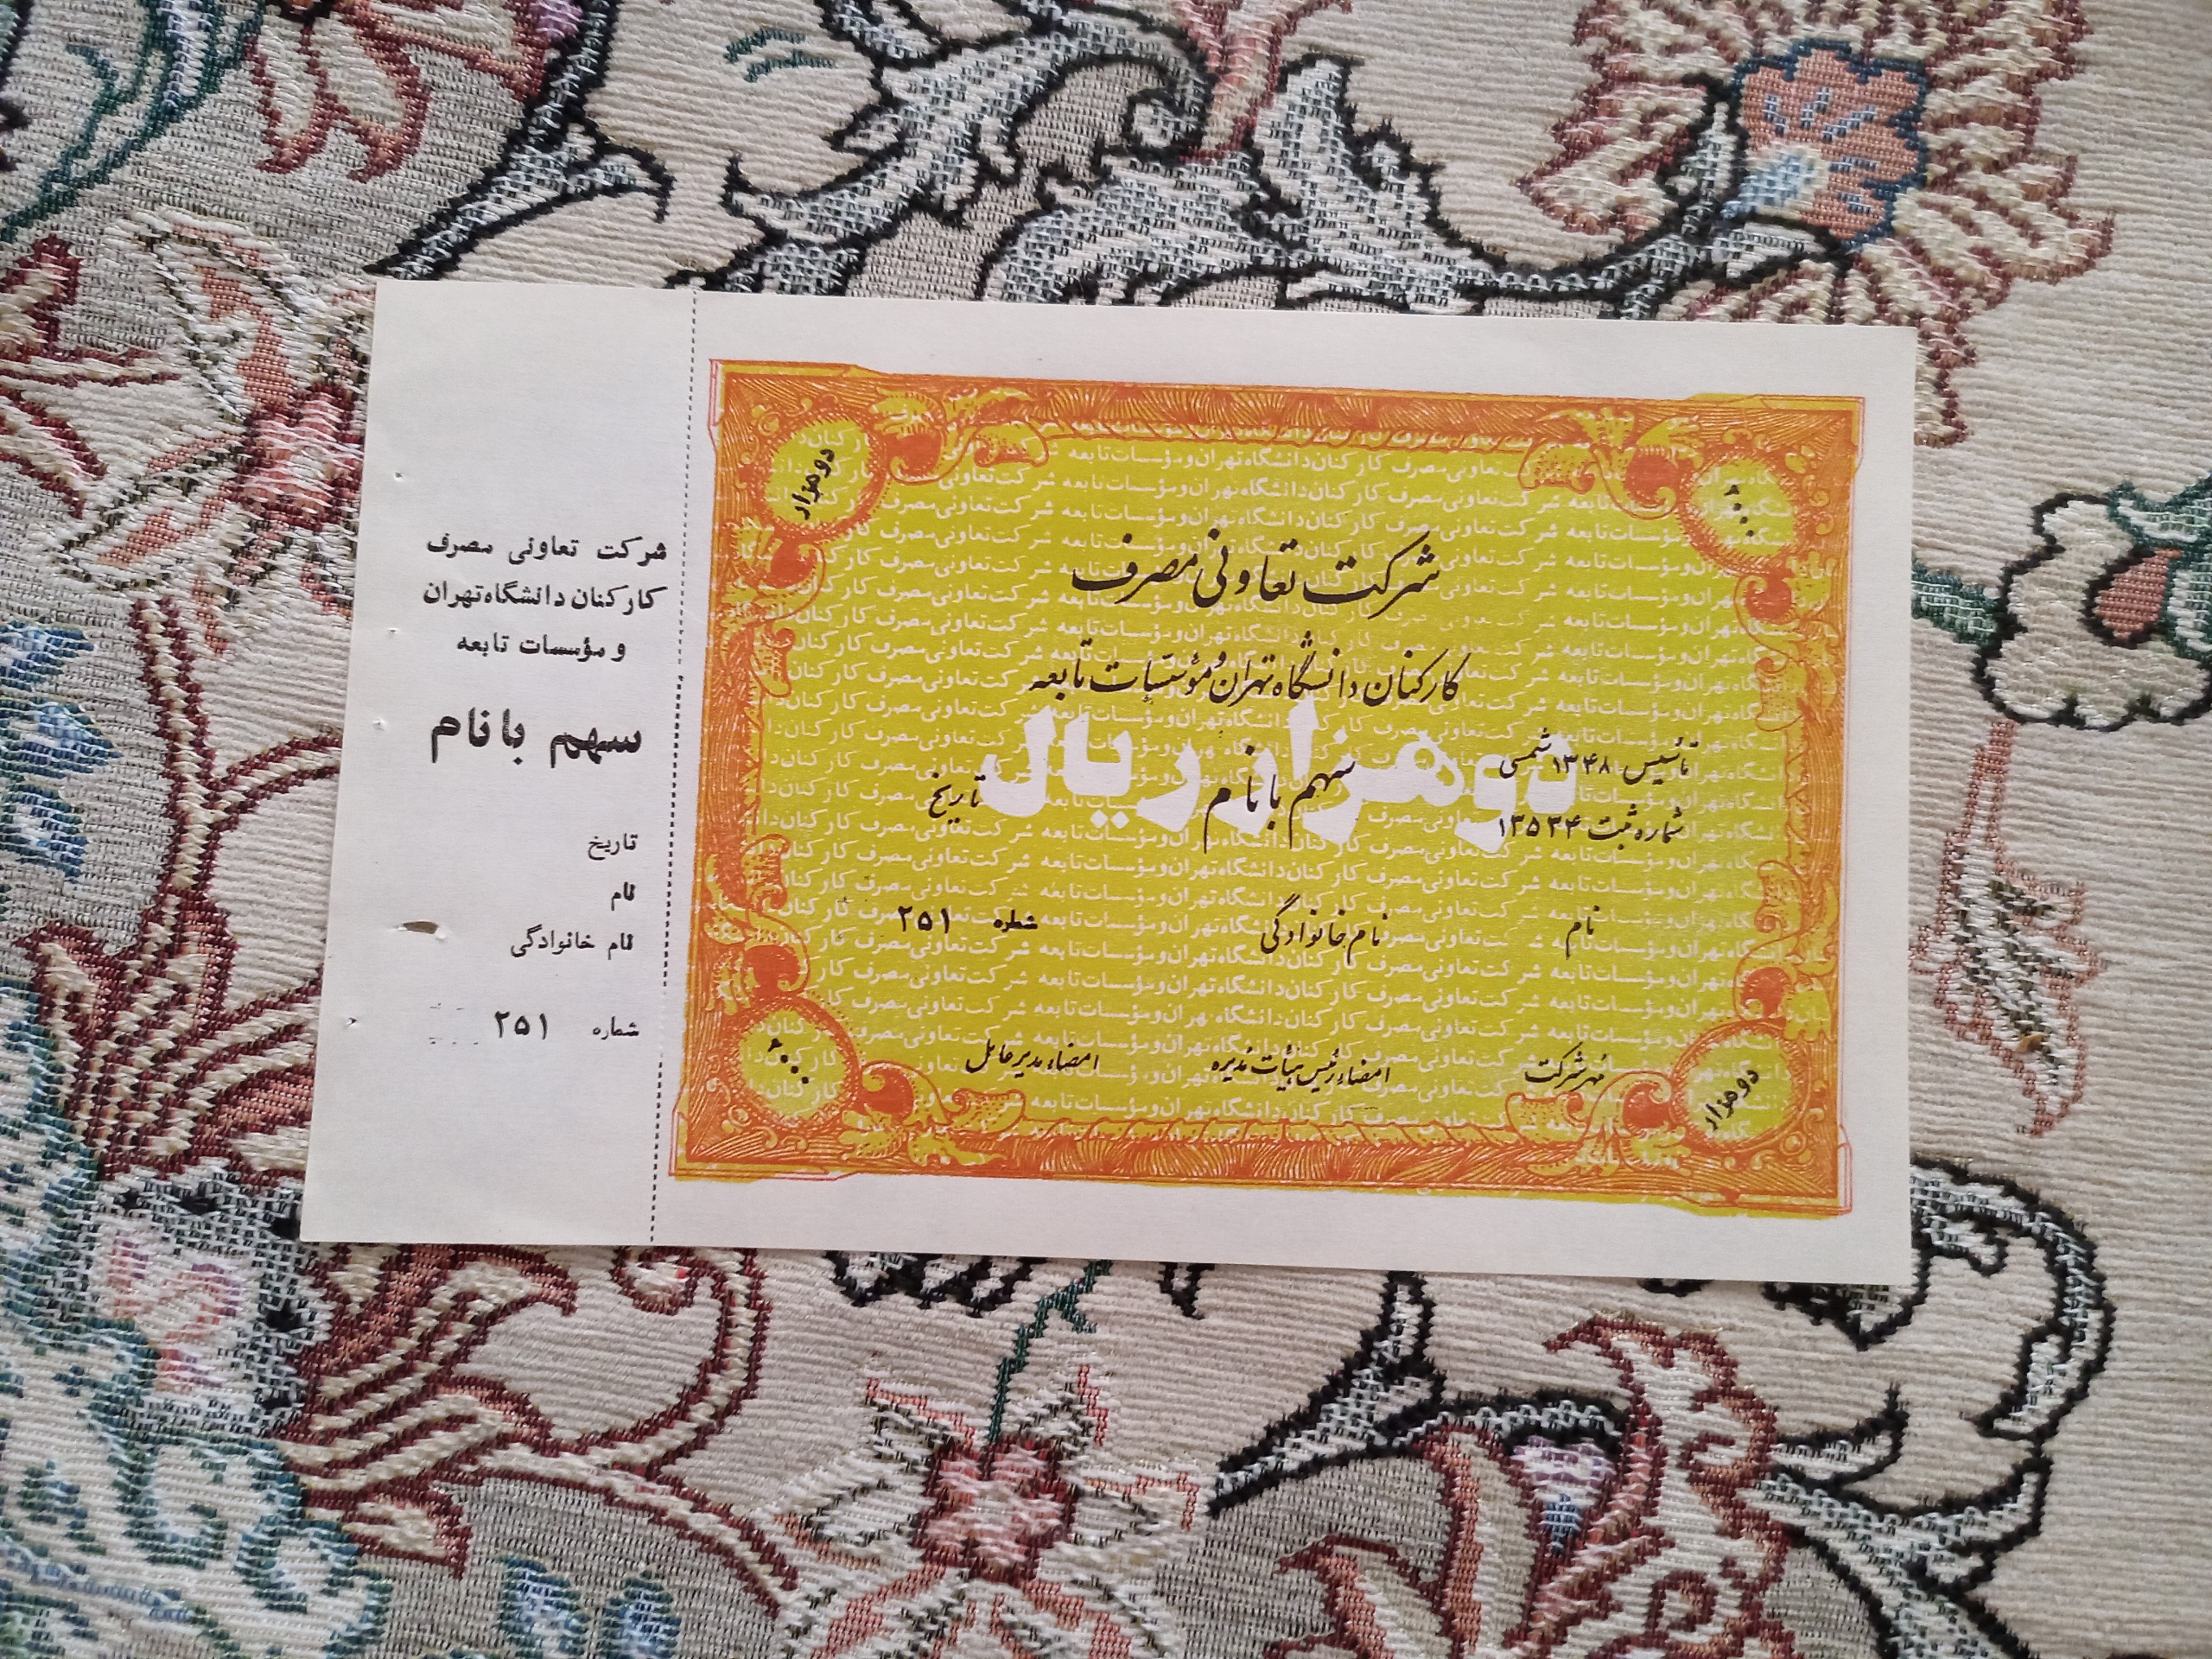 شرکت تعاونی مصرف
کارکنان دانشگاه تهران و مؤسسات تابعه
دوهزار ریال
تأسیس ۱۳۴۸ شمسی
شماره ثبت ۱۳۵۳۴
سهم با نام
تاریخ
نام
نام خانوادگی
شماره ۲۵۱
مهر شرکت
امضاء رئیس هیأت مدیره
امضاء مدیر عامل
۲۰۰۰
دوهزار
۲۰۰۰
دوهزار
شرکت تعاونی مصرف
کارکنان دانشگاه تهران
و مؤسسات تابعه
سهم با نام
تاریخ
نام
نام خانوادگی
شماره ۲۵۱